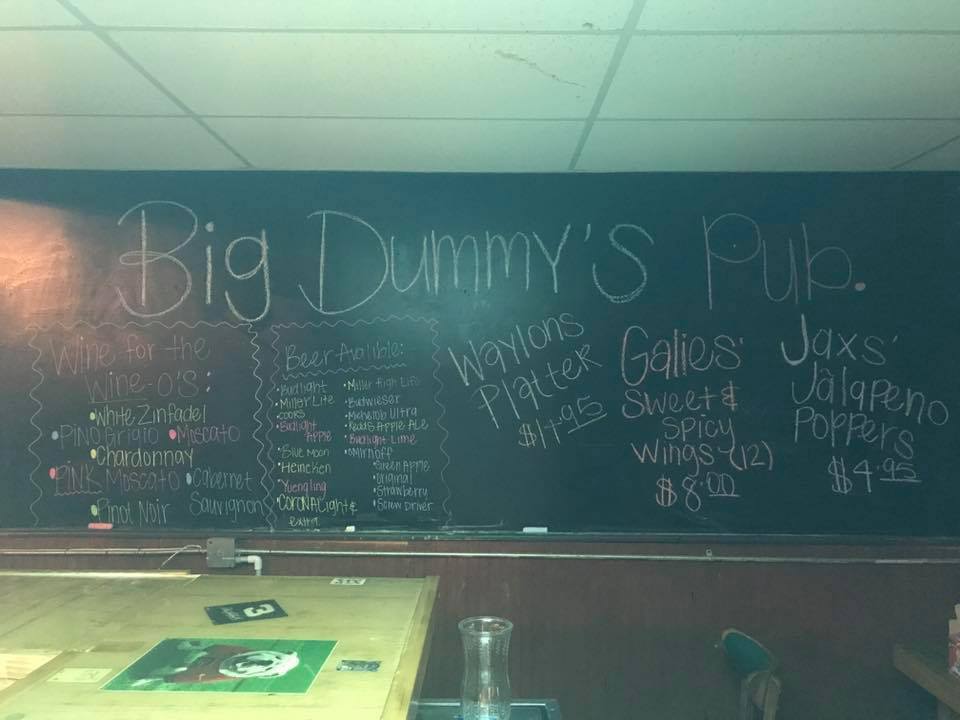 Big Dummy's Pub.
Wine for the
Wine-o's:
White Zinfadel
Pino Grigio
Moscato
Chardonnay
Pink Moscato
Cabernet
Sauvignon
Pinot Noir
Beer Avalible:
Budlight
Miller Lite
coors
Budlight
Apple
Blue Moon
Heineken
Yuengling
Corona Light &
Extra
Miller High Life
Budwieser
Michelob Ultra
Redds Apple Ale
Budlight Lime
Smirnoff
Green Apple
Original
Strawberry
Screw Driver
Waylons
Platter
Galies'
Sweet &
Spicy
Wings (12)
$8.00
Jaxs'
Jalapeno
Poppers
$4.95
3